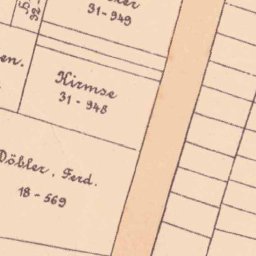 31-949
Kirmse
31-948
Döbler, Ferd.
18-569